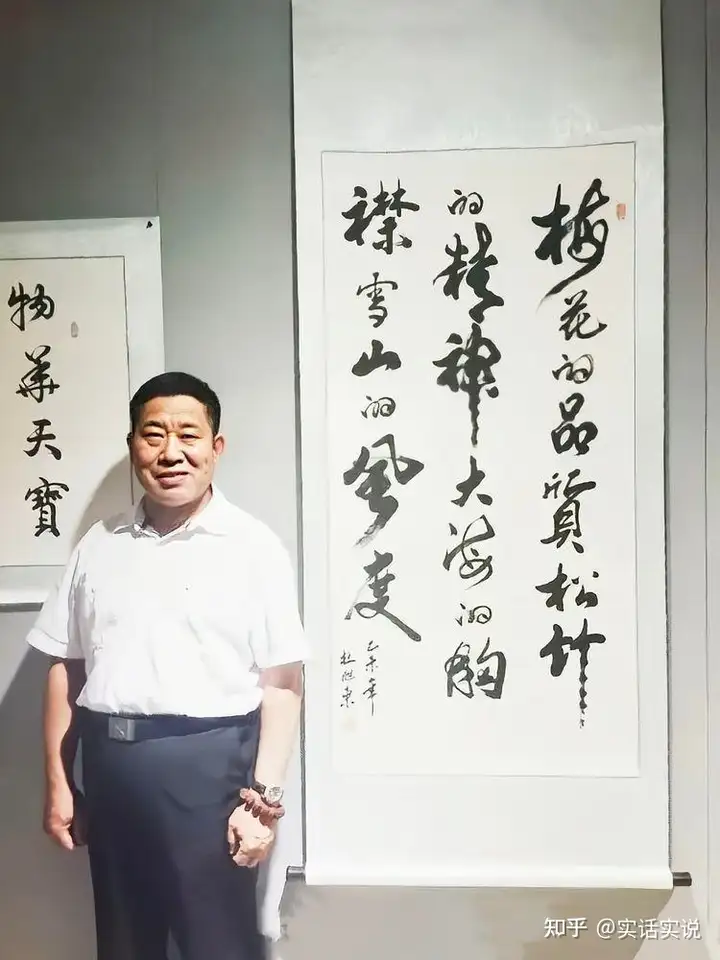 梅花的品質松竹
的精神大海的胸
襟雪山的風度
乙未年
物華天寶
知乎 @实话实说